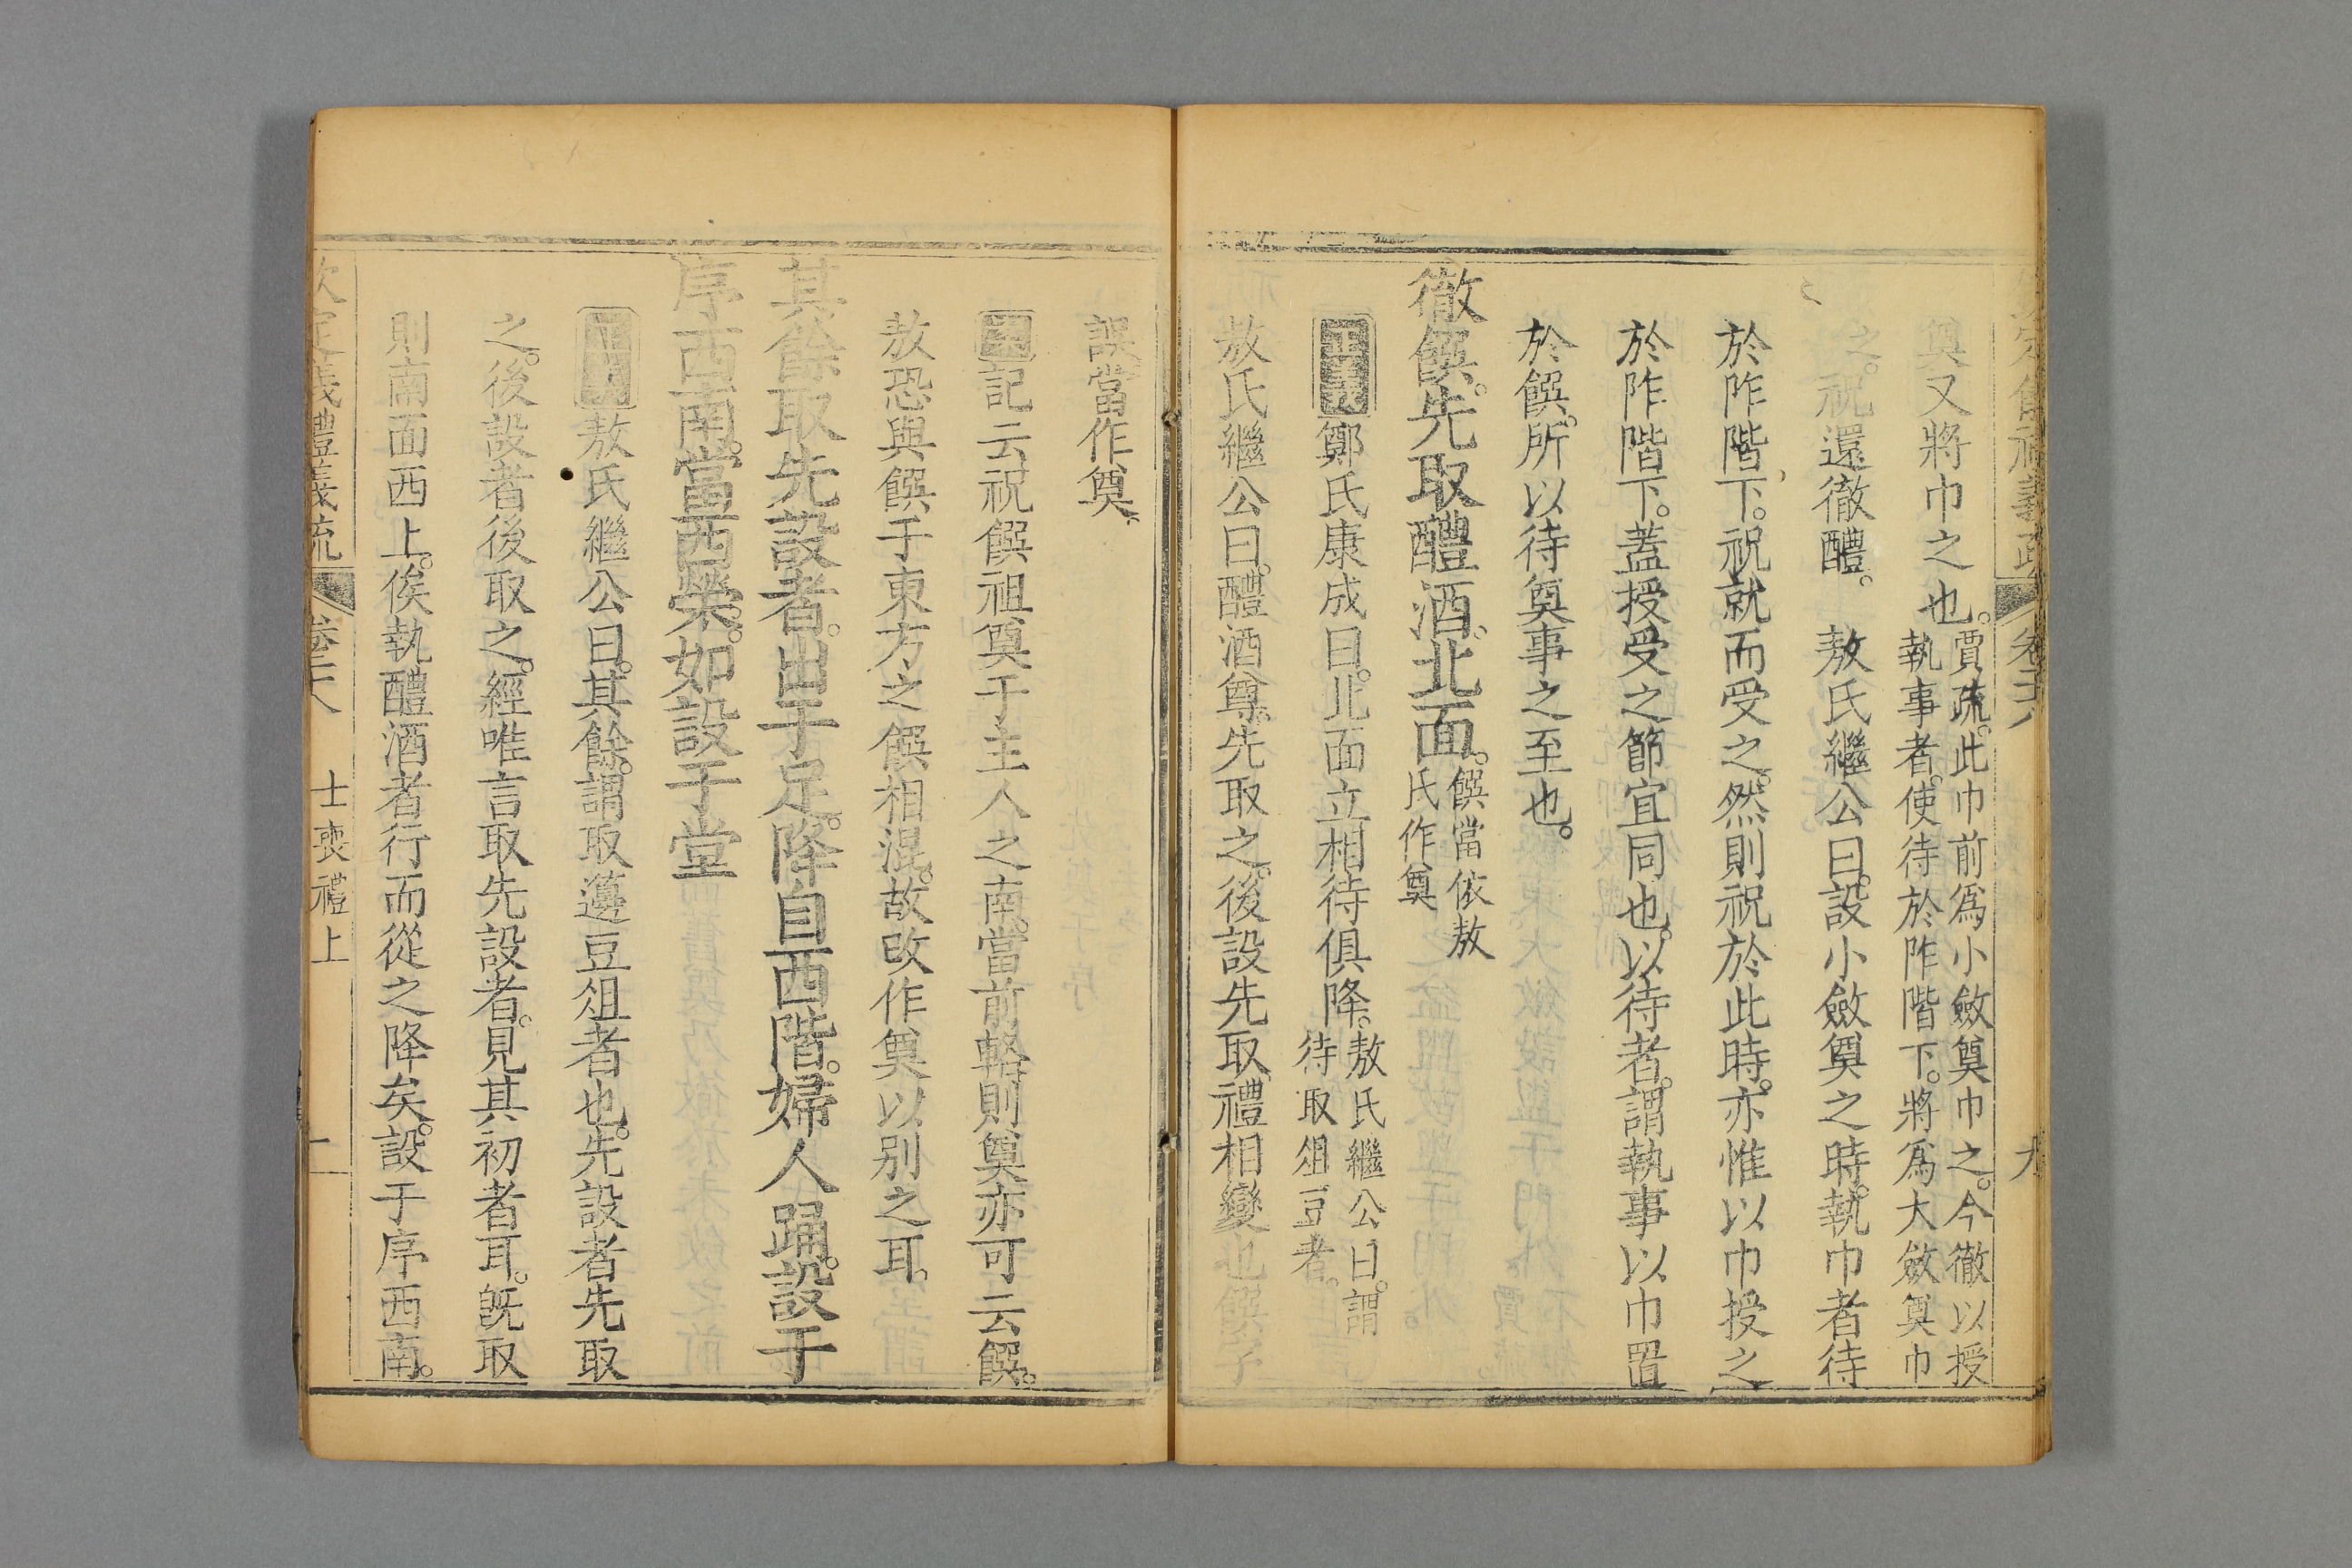 欽定儀禮義疏 卷二十八 九
奠又將巾之也。賈疏。此巾前爲小斂奠巾之。今徹以授
執事者。使待於阼階下。將爲大斂奠巾
之。祝還徹醴。 敖氏繼公曰。設小斂奠之時。執巾者待
於阼階下。祝就而受之。然則祝於此時。亦惟以巾授之
於阼階下。蓋授受之節宜同也。以待者。謂執事以巾置
於饌。所以待奠事之至也。
徹饌。先取醴酒。北面。饌當依敖
氏作奠
正義鄭氏康成曰。北面立相待俱降。敖氏繼公曰。謂
待取俎豆者。
敖氏繼公曰。醴酒尊。先取之。後設先取。禮相變也饌字
誤當作奠。
案記云祝饌祖奠于主人之南。當前輅則奠亦可云饌。
敖恐與饌于東方之饌相混。故改作奠以别之耳。
其餘取先設者。出于足。降自西階。婦人踊。設于
序西南。當西榮。如設于堂
正義敖氏繼公曰。其餘。謂取籩豆俎者也。先設者先取
之。後設者後取之。經唯言取先設者。見其初者耳。旣取
則南面西上。俟執醴酒者行而從之降矣。設于序西南。
欽定儀禮義疏 卷二十八 士喪禮上